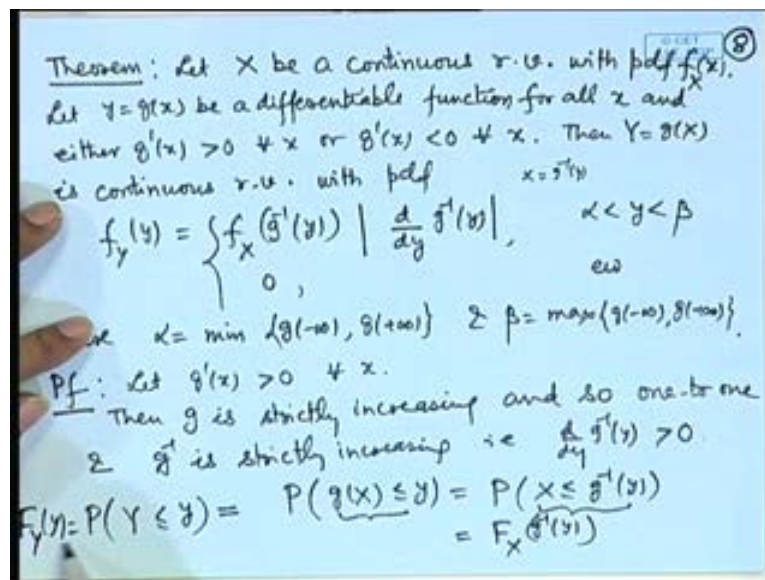 8
Theorem : Let X be a continuous r.v. with pdf f_X(x).
Let y = g(x) be a differentiable function for all x and
either g'(x) > 0 ∀ x or g'(x) < 0 ∀ x. Then Y = g(X)
is continuous r.v. with pdf x = g⁻¹(y)
f_Y(y) = { f_X(g⁻¹(y)) | d/dy g⁻¹(y) |, α < y < β
0, ew
α = min {g(-∞), g(+∞)} & β = max {g(-∞), g(+∞)}.
Pf : Let g'(x) > 0 ∀ x.
Then g is strictly increasing and so one-to one
& g⁻¹ is strictly increasing ie d/dy g⁻¹(y) > 0.
F_Y(y) = P(Y ≤ y) = P(g(X) ≤ y) = P(X ≤ g⁻¹(y))
= F_X(g⁻¹(y))